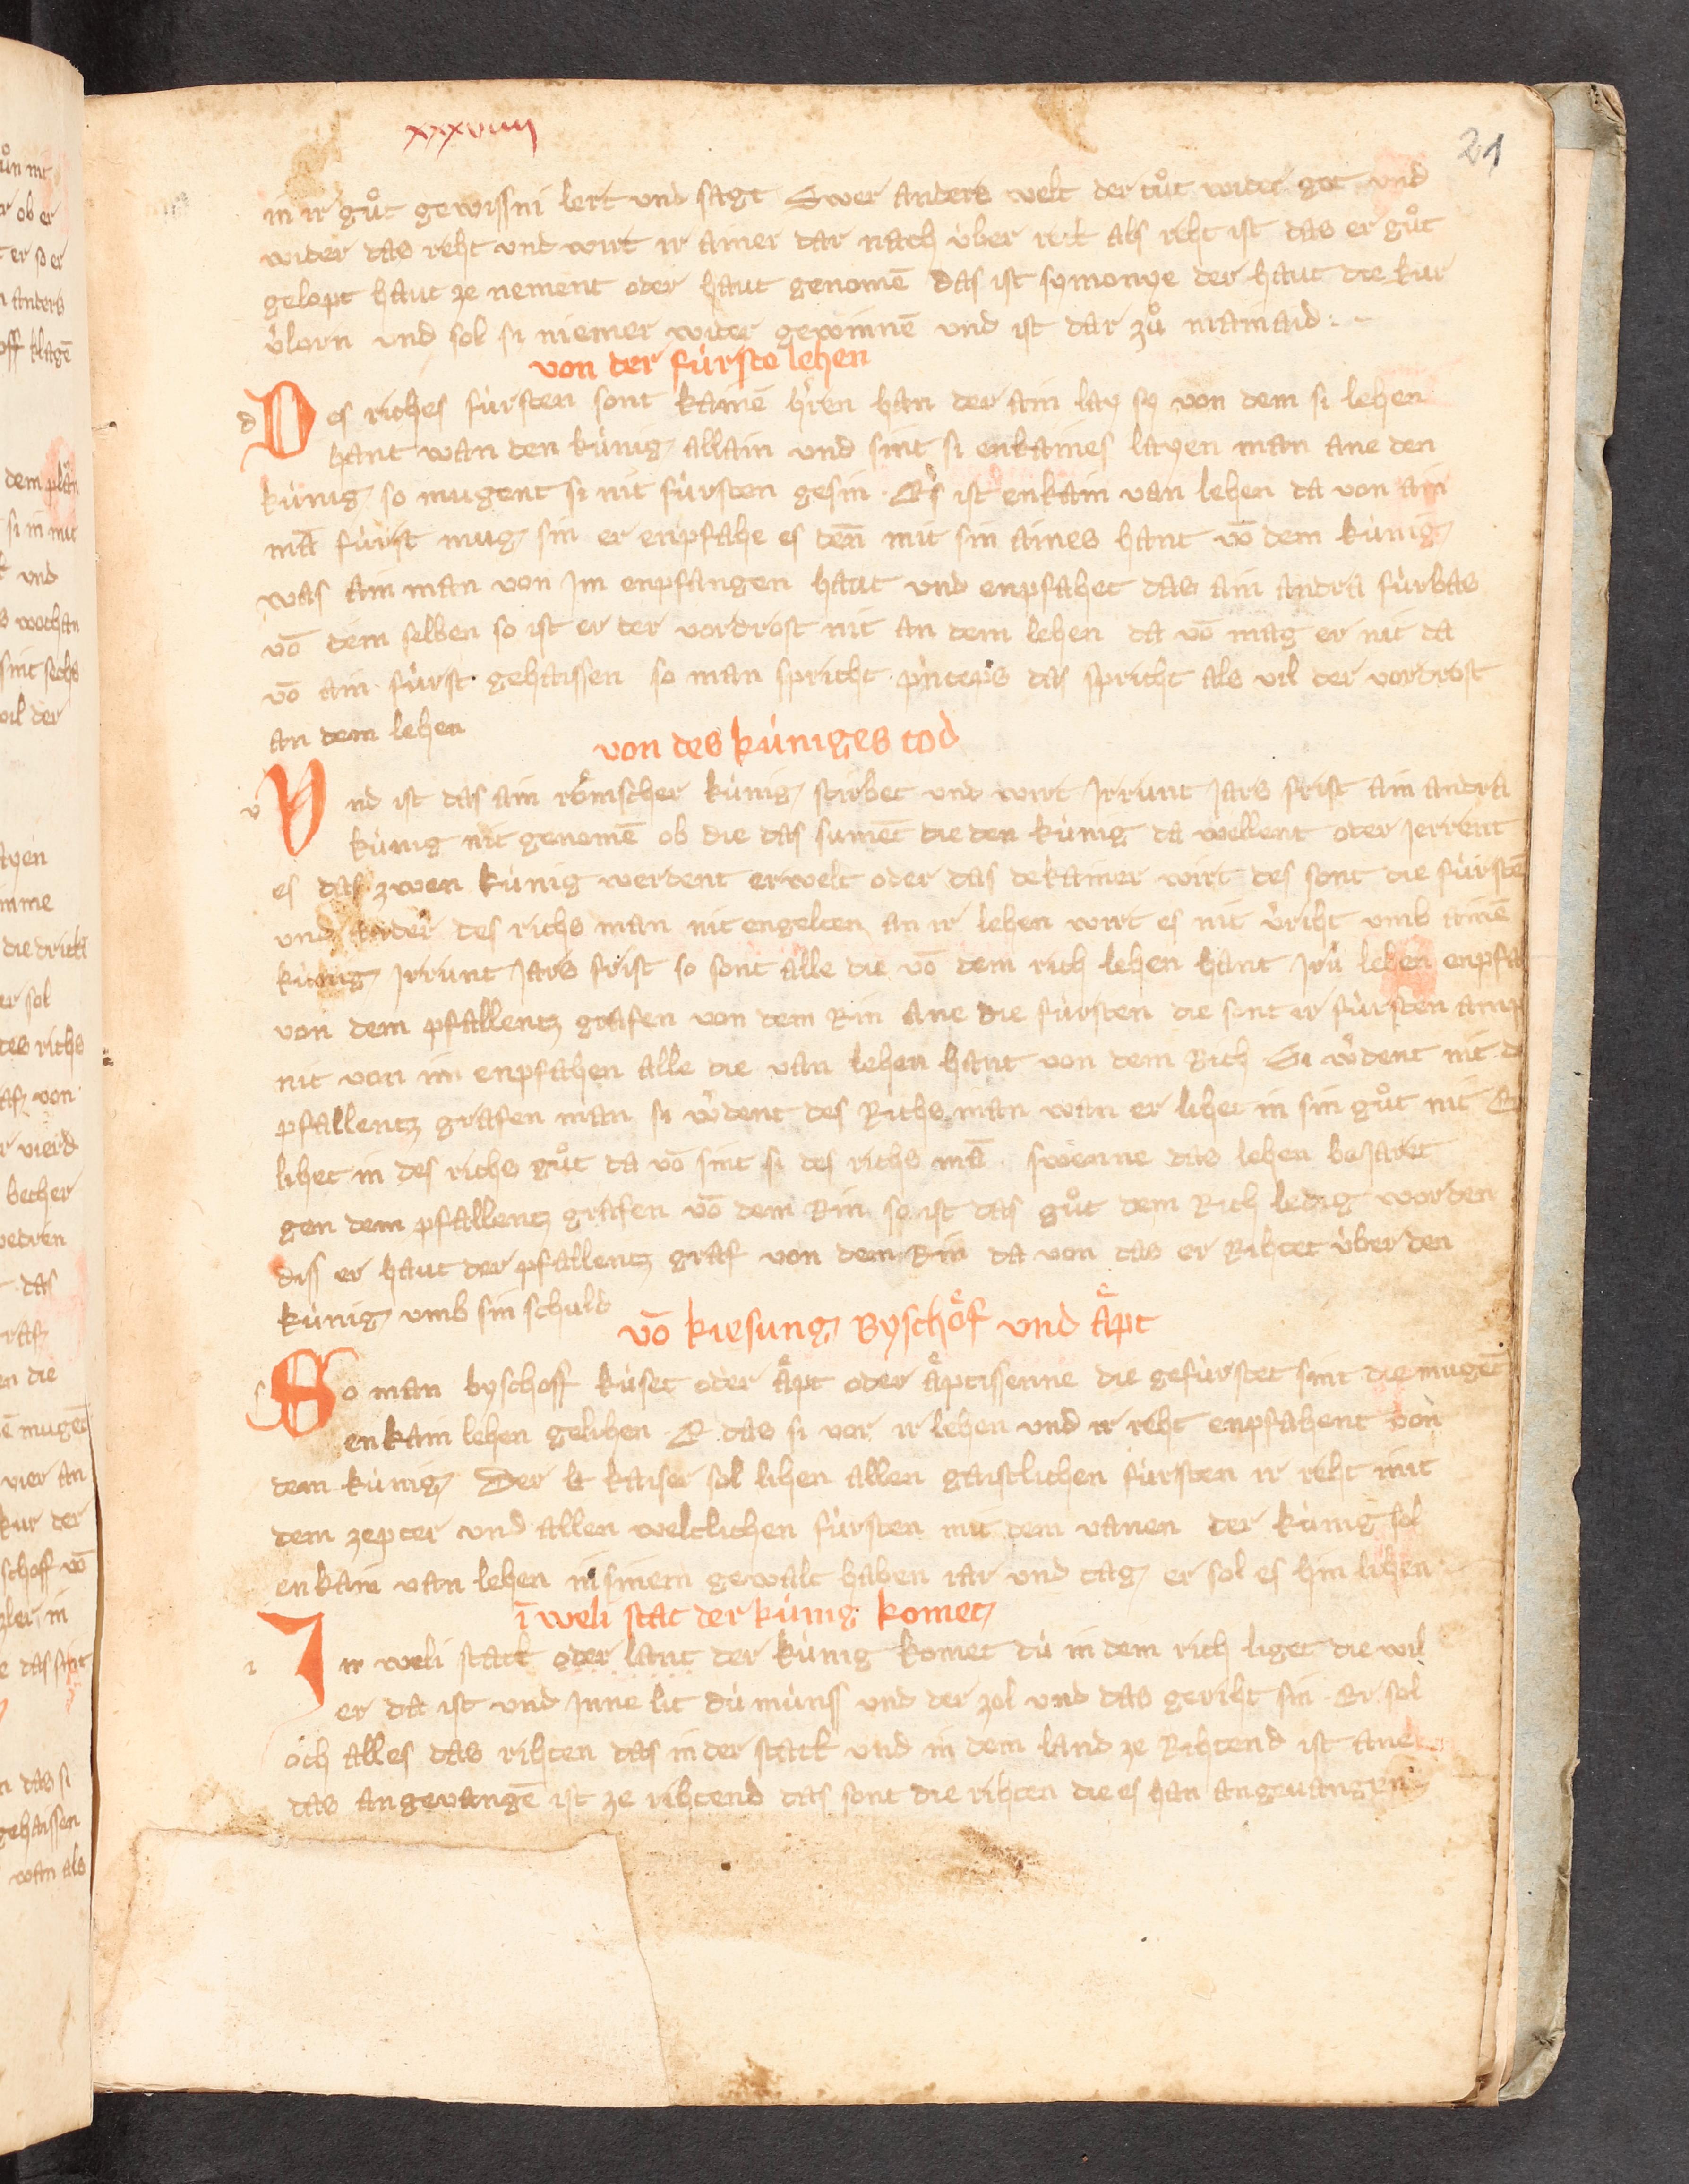 xxxviiii
21
in ir gůt gewissni lert und sagt Swer anders welt der tůt wider got und
wider das reht und wirt ir ainer dar nach über rett als reht ist das er gůt
gelopt haut ze nement oder haut genomē das ist symonye der haut die kur
v̓lorn und sol si niemer wider gewinnē und ist dar zů mainaid
von der fürste lehen
d
Des riches fürsten sont kainē h̓ren han der ain lay sy von dem si lehen
hant wan den künig allain und sint si enkaines layen man ane den
künig so mugent si nit fürsten gesin Es ist enkain van lehen da von ain
mā fürst mug sin er enpfahe es den̄ mit sin aines hant vō dem künig
was ain man von im enpfangen haut und enpfahet das ain andra fürbas
vō dem selben so ist er der vordrost nit an dem lehen da vō mag er nit da
vō ain fürst gehaissen so man spricht p̓nceps das spricht als vil der vordrost
an dem lehen
von des küniges tod
v
Und ist das ain römscher künig stirbet und wirt Jrrunt Jars frist ain andra
künig nit genomē ob die das sumēt die den künig da wellent oder Jerrent
es das zwen künig werdent erwelt oder das dekainer wirt des sont die fürstē
und ander des richs man nit engelten an ir lehen wirt es nit v̓riht umb ainē
künig Jrrunt Jars frist so sont alle die vō dem rich lehen hant Jrü lehen enpfa
von dem pfallentz grafen von dem Rin ane die fürsten die sint ir fürsten amp
nit von im enpfahen alle die van lehen hant von dem Rich Si w̓dent nit d
pfallentz grafen man si w̓dent des Richs man wan er lihet in sin gůt nit Er
lihet in des richs gůt da vō sint si des richs mā swenne das lehen beJaret
gen dem pfallentz grafen vō dem Rin so ist das gůt dem Rich ledig worden
diss er haut der pfallentz graf von dem Rin da von das er Rihtet über den
künig umb sin schuld
vō kiesung Byschoͤf und aͤpt
s
So man byschoff küset oder aͤpt oder aͤptissenne die gefürstet sint die mugēt
enkain lehen gelihen E das si vor ir lehen und ir reht enpfahent von
dem künig Der kaiser sol lihen allen gaistlichen fürsten ir reht mit
dem zepter und allen weltlichen fürsten mit dem vanen der künig sol
enkain van lehen in sinem gewalt haben iar und tag er sol es hin lihen
ī weli stat der künig komet
i
In weli statt oder lant der künig komet dü in dem rich liget die wil
er da ist und Jnne lit dü müns und der zol und das geriht sin Er sol
och alles das rihten das in der statt und in dem land ze Rihtend ist ane
das angevangē ist ze rihtend das sont die rihten die es han angevangen